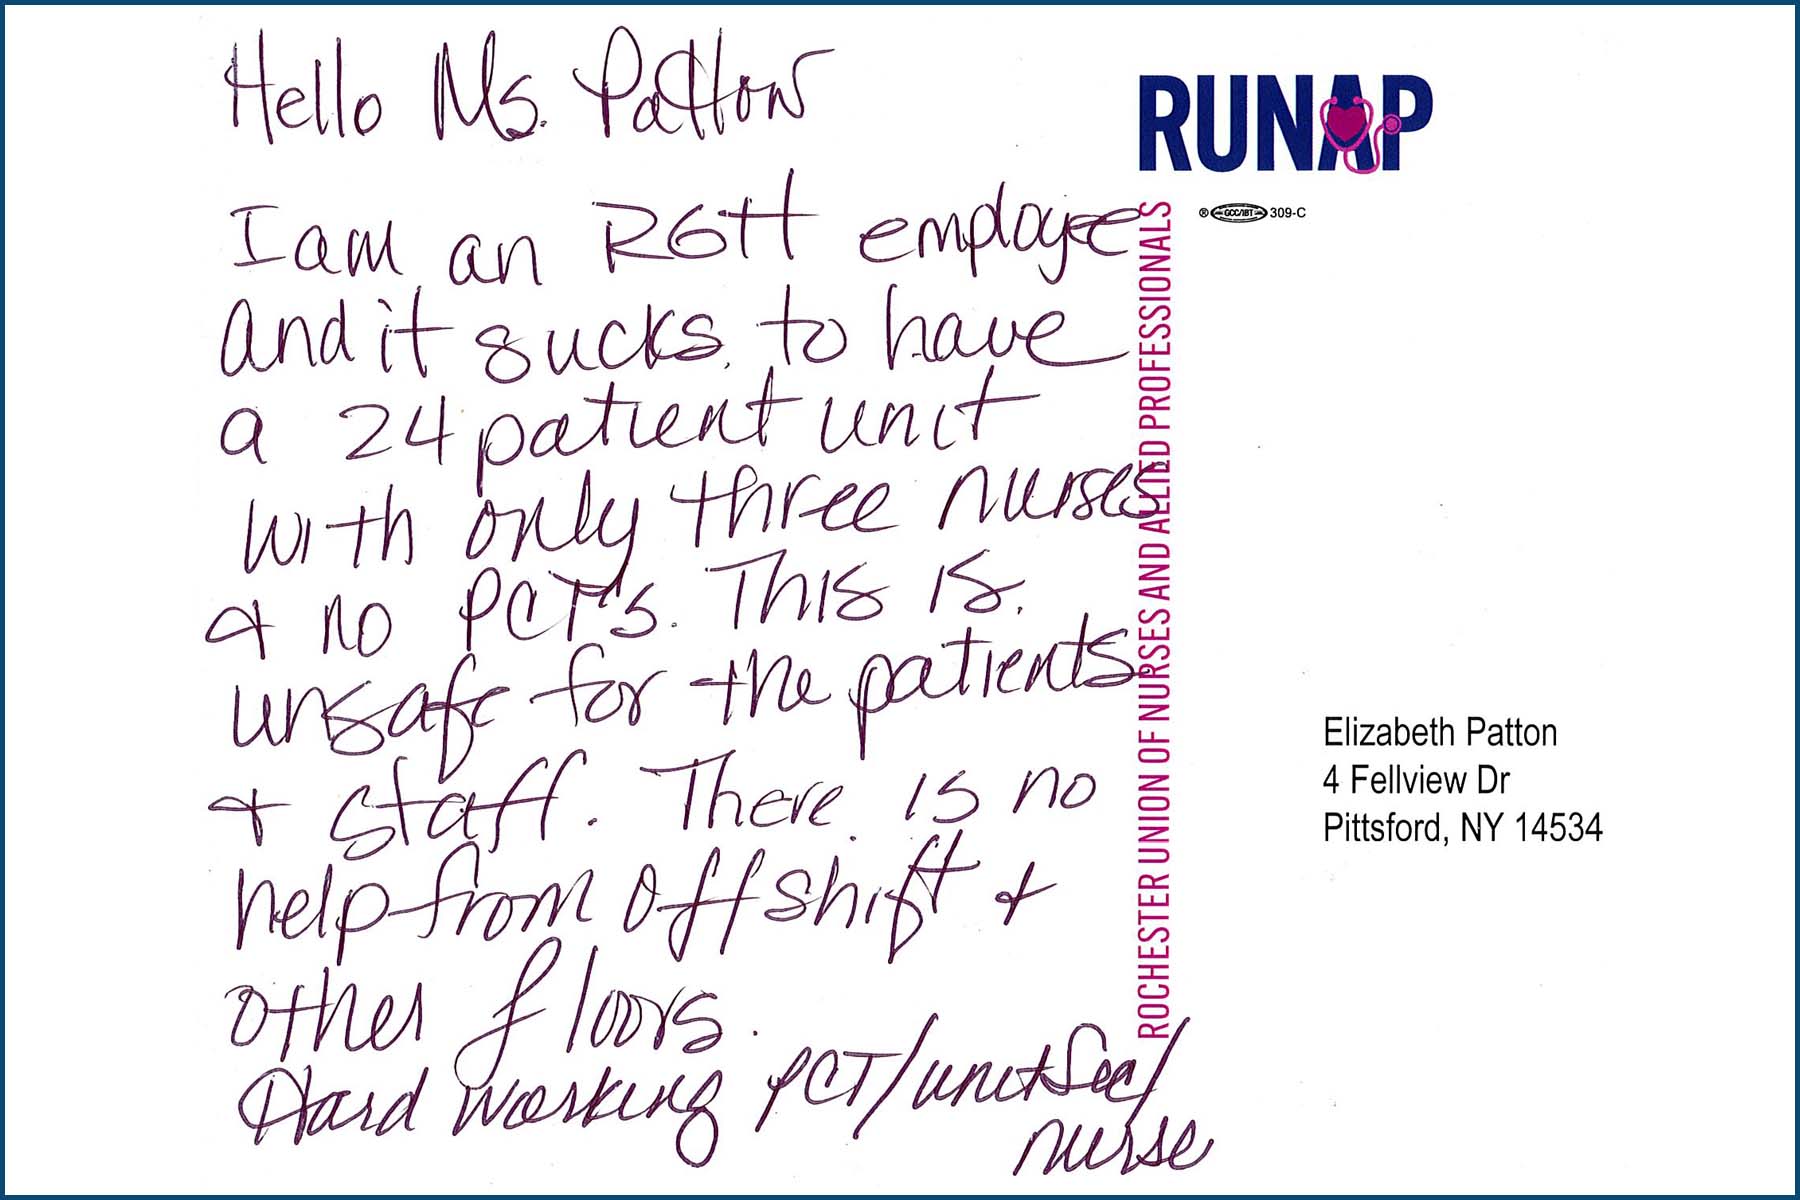 Hello Ms. Patton
I am an RGH employee
and it sucks to have
a 24 patient unit
with only three nurses
& no PCT's. This is
unsafe for the patients
& staff. There is no
help from off shift &
other floors.
Hard working PCT/unit Sec/
nurse
RUNAP
® GCC/IBT 309-C
ROCHESTER UNION OF NURSES AND ALLIED PROFESSIONALS
Elizabeth Patton
4 Fellview Dr
Pittsford, NY 14534